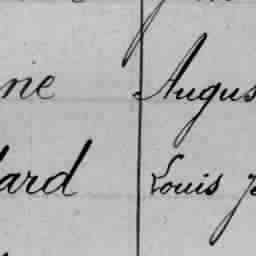 ne Augus
lard Louis